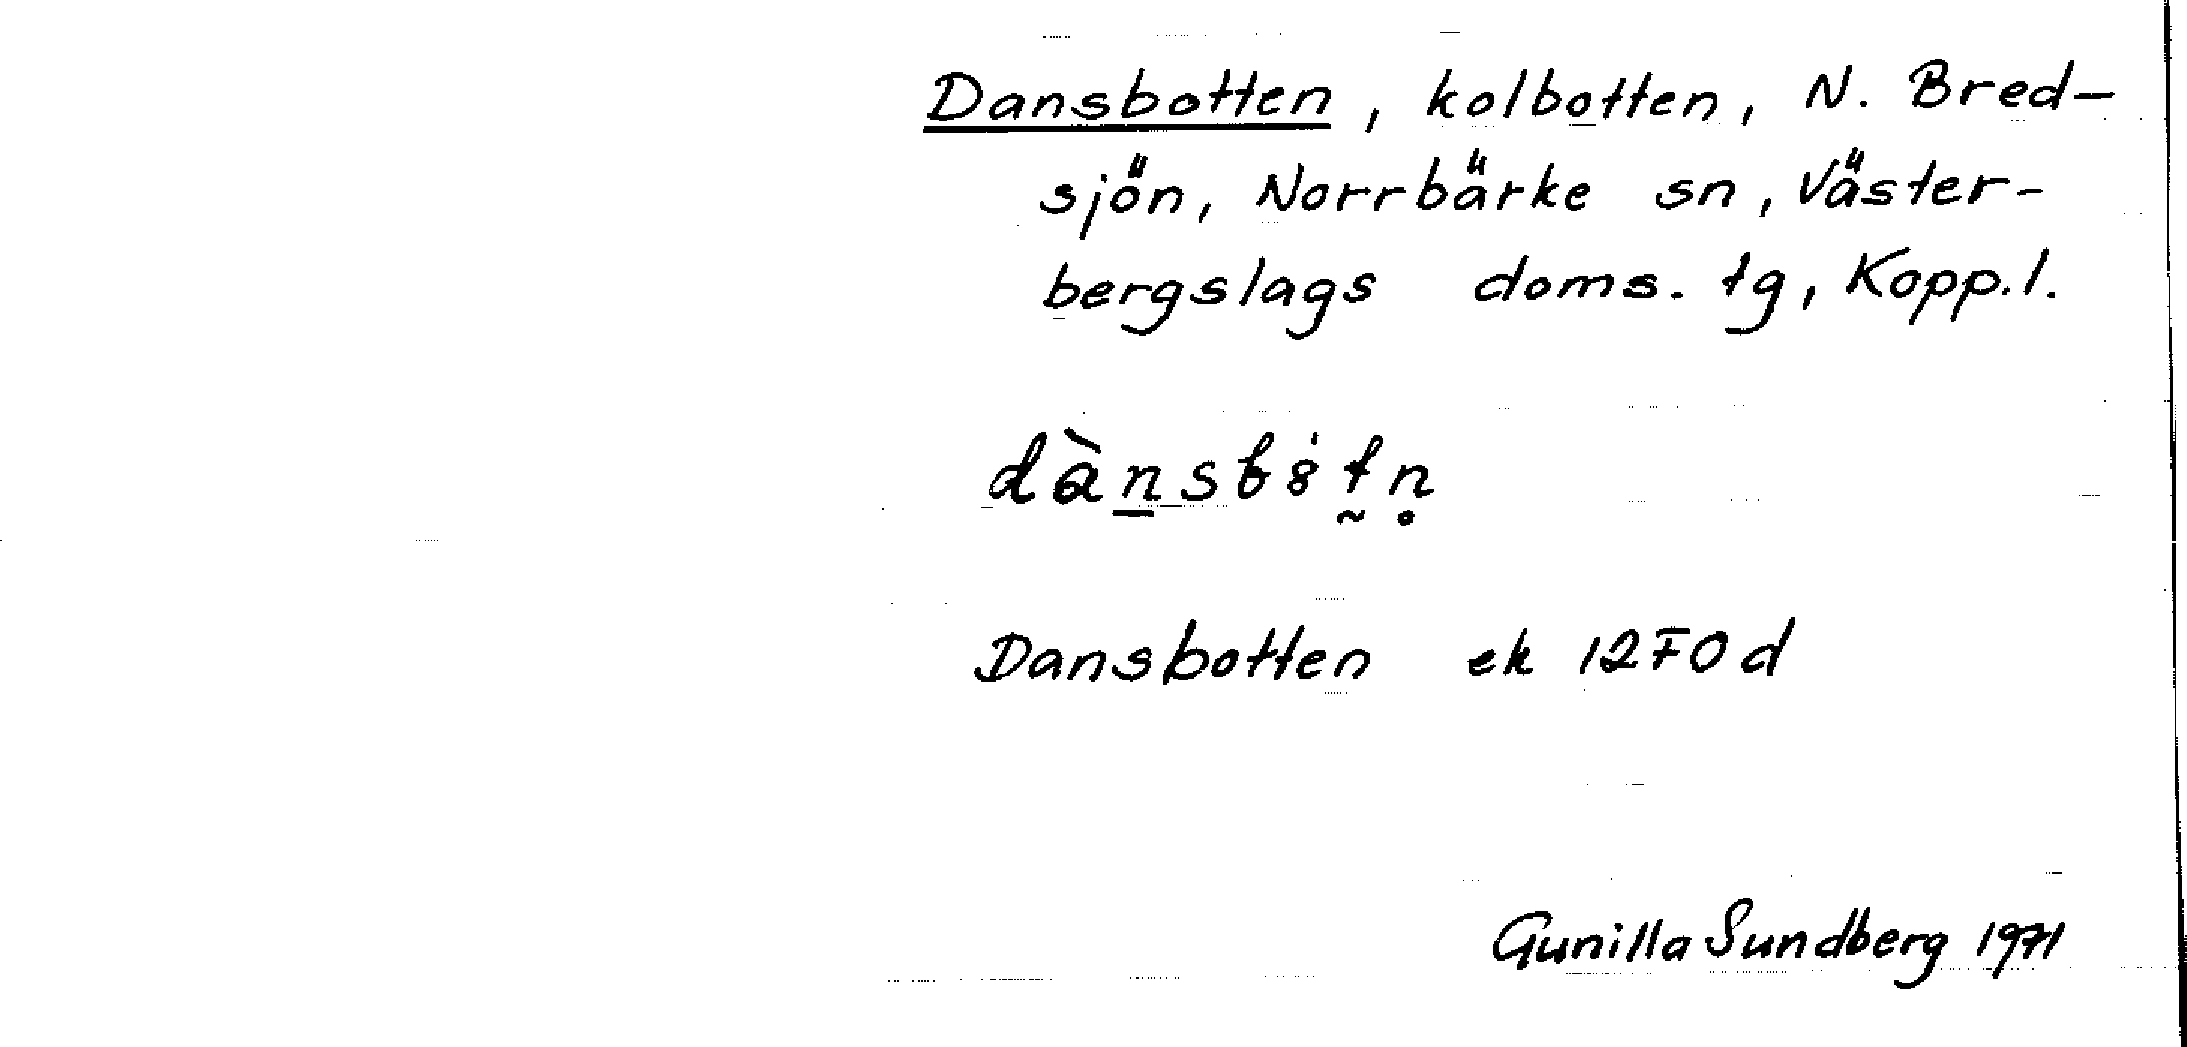 Dansbotten, kolbotten, N. Bred-
sjön, Norrbärke sn, Väster-
bergslags doms. tg, Kopp.l.
Dansbotten ek 12F0d
Gunilla Sundberg 1971